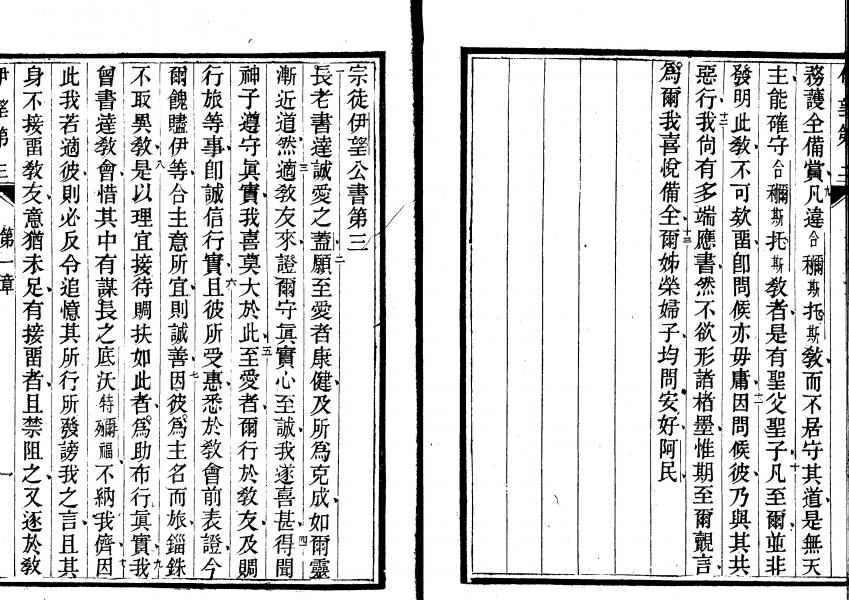 務護全備賞凡違合穪斯托斯敎而不居守其道是無天
主能確守合穪斯托斯敎者是有聖父聖子凡至爾並非
發明此敎不可欵畱卽問候亦毋庸因問候彼乃與其共
惡行我尙有多端應書然不欲形諸楮墨惟期至爾覿言
爲爾我喜悅備全爾姊榮婦子均問安好阿民
宗徒伊望公書第三
長老書達誠愛之蓋願至愛者康健及所爲克成如爾靈
漸近道然適敎友來證爾守眞實心至誠我遂喜甚得聞
神子遵守眞實我喜莫大於此至愛者爾行於敎友及賙
行旅等事卽誠信行實且彼所受惠悉於敎會前表證今
爾餽贐伊等合主意所宜則誠善因彼爲主名而旅錙銖
不取異敎是以理宜接待賙扶如此者爲助布行眞實我
曾書達敎會惜其中有謀長之底沃特殢福不納我儕因
此我若適彼則必反令追憶其所行所發謗我之言且其
身不接畱敎友意猶未足有接畱者且禁阻之又逐於敎
伊望第三 第一章 一